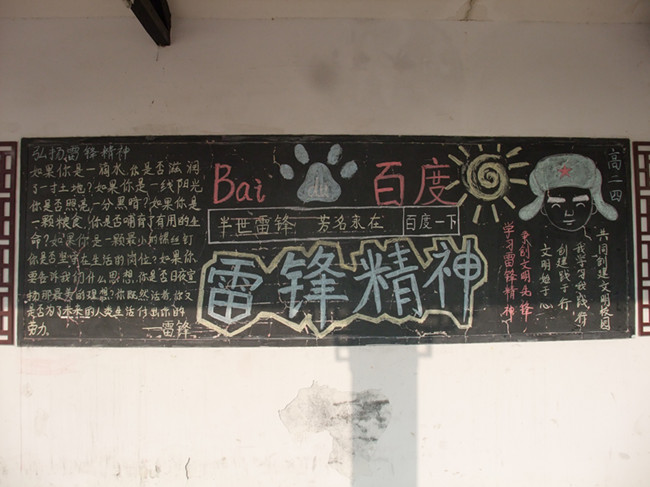 弘扬雷锋精神
如果你是一滴水,你是否滋润
了一寸土地?如果你是一线阳光
你是否照亮一分黑暗?如果你是
一颗粮食,你是否哺育了有用的生
命?如果你是一颗最小的螺丝钉
你是否坚守在生活的岗位?如果你
要告诉我们什么思想,你是否日夜宣
扬那最美的理想?你既然活着,你又
是否为了未来的人类生活付出你的
劳动。
——雷锋
Bai
百度
半世雷锋 芳名永在
百度一下
雷锋精神
高二四
共同创建文明校园
我学习我践行
创建践于行
文明始于心
争创文明先锋
学习雷锋精神